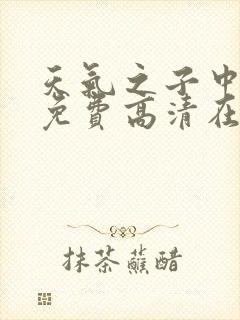 天氣之子中
免費高清在
抹茶蘸醋